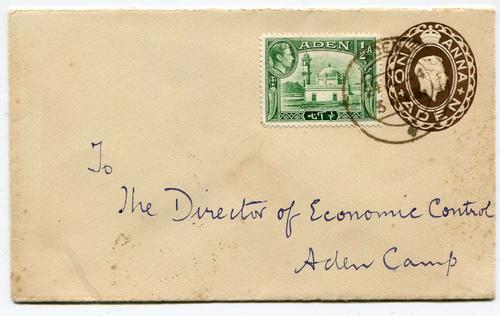 ADEN
½ A
ONE ANNA
ADEN
To
The Director of Economic Control
Aden Camp